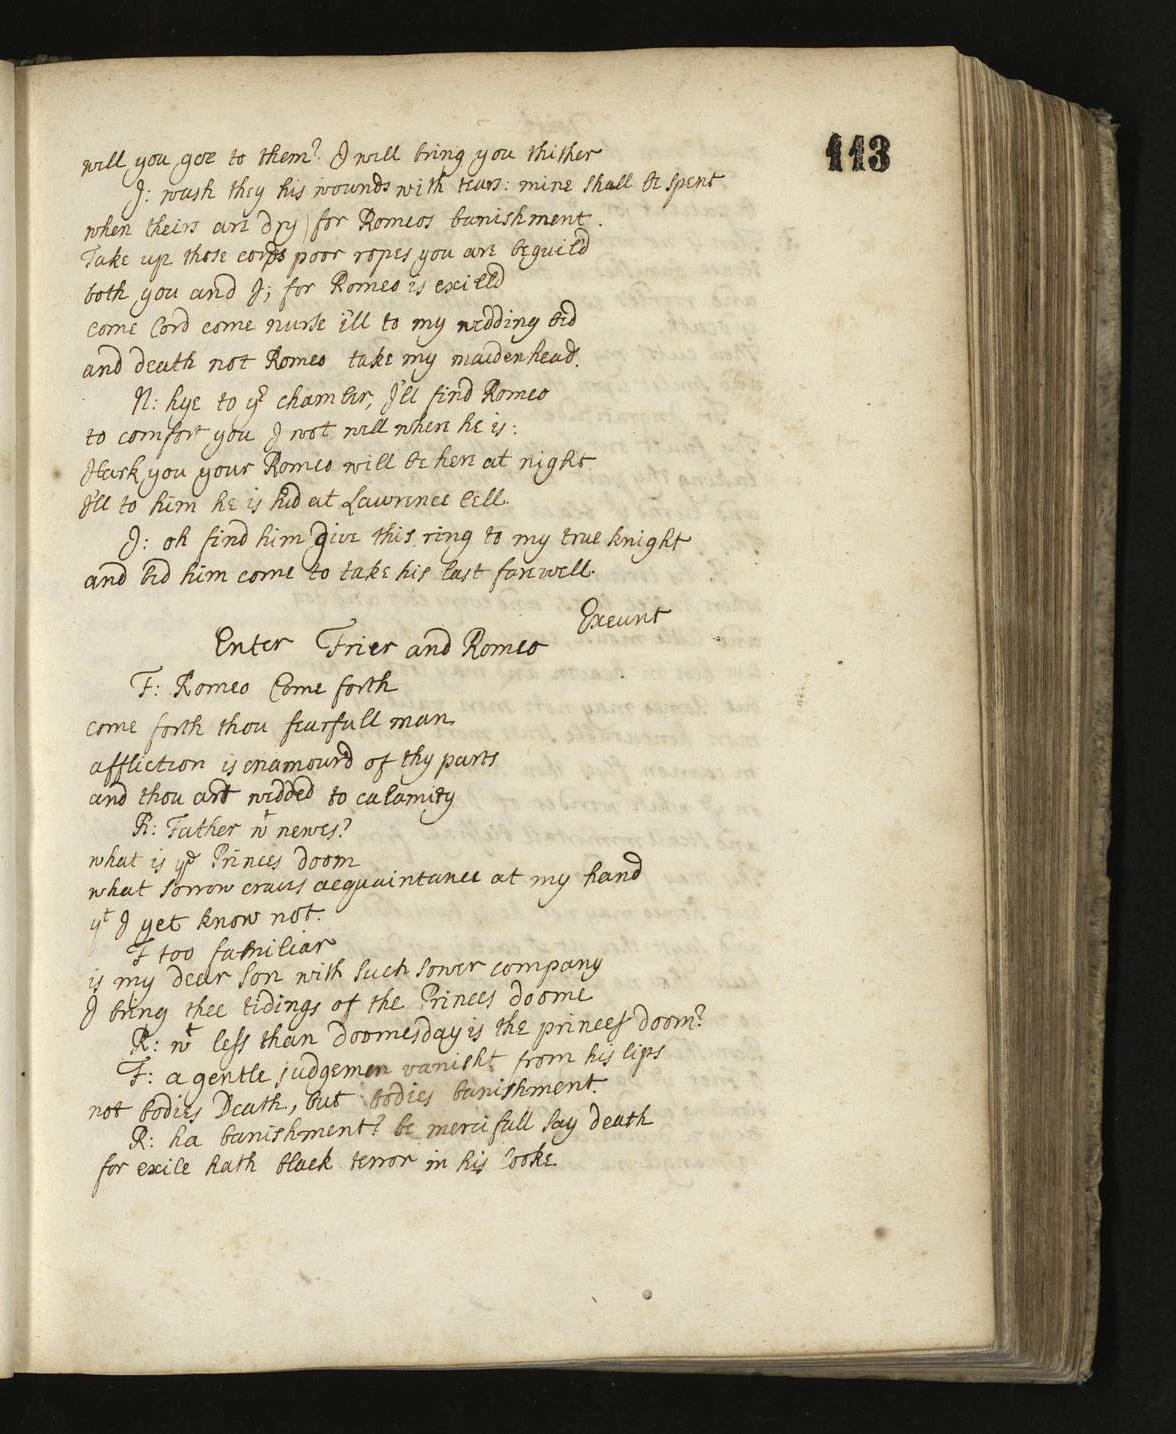 113
will you goe to them? I will bring you thither
J: wash they his wounds with tears: mine shall be spent
when theirs are dry for Romeos banishment.
Take up those cords poor ropes you are beguild
both you and I; for Romeo is exild
come Cord come nurse i'll to my wedding bed
and death not Romeo take my maidenhead.
N: hye to yr chamber, I'll find Romeo
to comfort you I wot well where he is:
Hark you your Romeo will be here at night
I'll to him he is hid at Lawrence Cell.
J: oh find him give this ring to my true knight
and bid him come to take his last farewell.
Exeunt
Enter Frier and Romeo
F: Romeo Come forth
come forth thou fearfull man
affliction is enamourd of thy parts
and thou art wedded to calamity
R: Father wt newes?
what is ye Princes doom
what sorrow craves acquaintance at my hand
yt I yet know not.
F too familiar
is my dear Son with such sower company
I bring thee tidings of the Princes doome
R: wt less than doomesday is the princes doom?
F: a gentle judgemen vanisht from his lips
not bodies Death, but bodies banishment.
R: ha banishment? be mercifull say death
for exile hath black terror in his looke